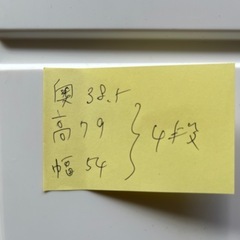 奥 38.5
高 79
幅 54
} 4段